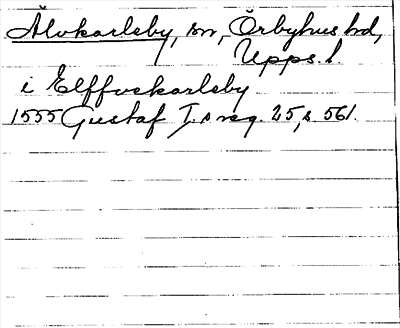 Älvkarleby, sn, Örbyhus hd,
Upps. l.
i Elffuekarleby
1555 Gustaf I:s reg. 25, s 561.